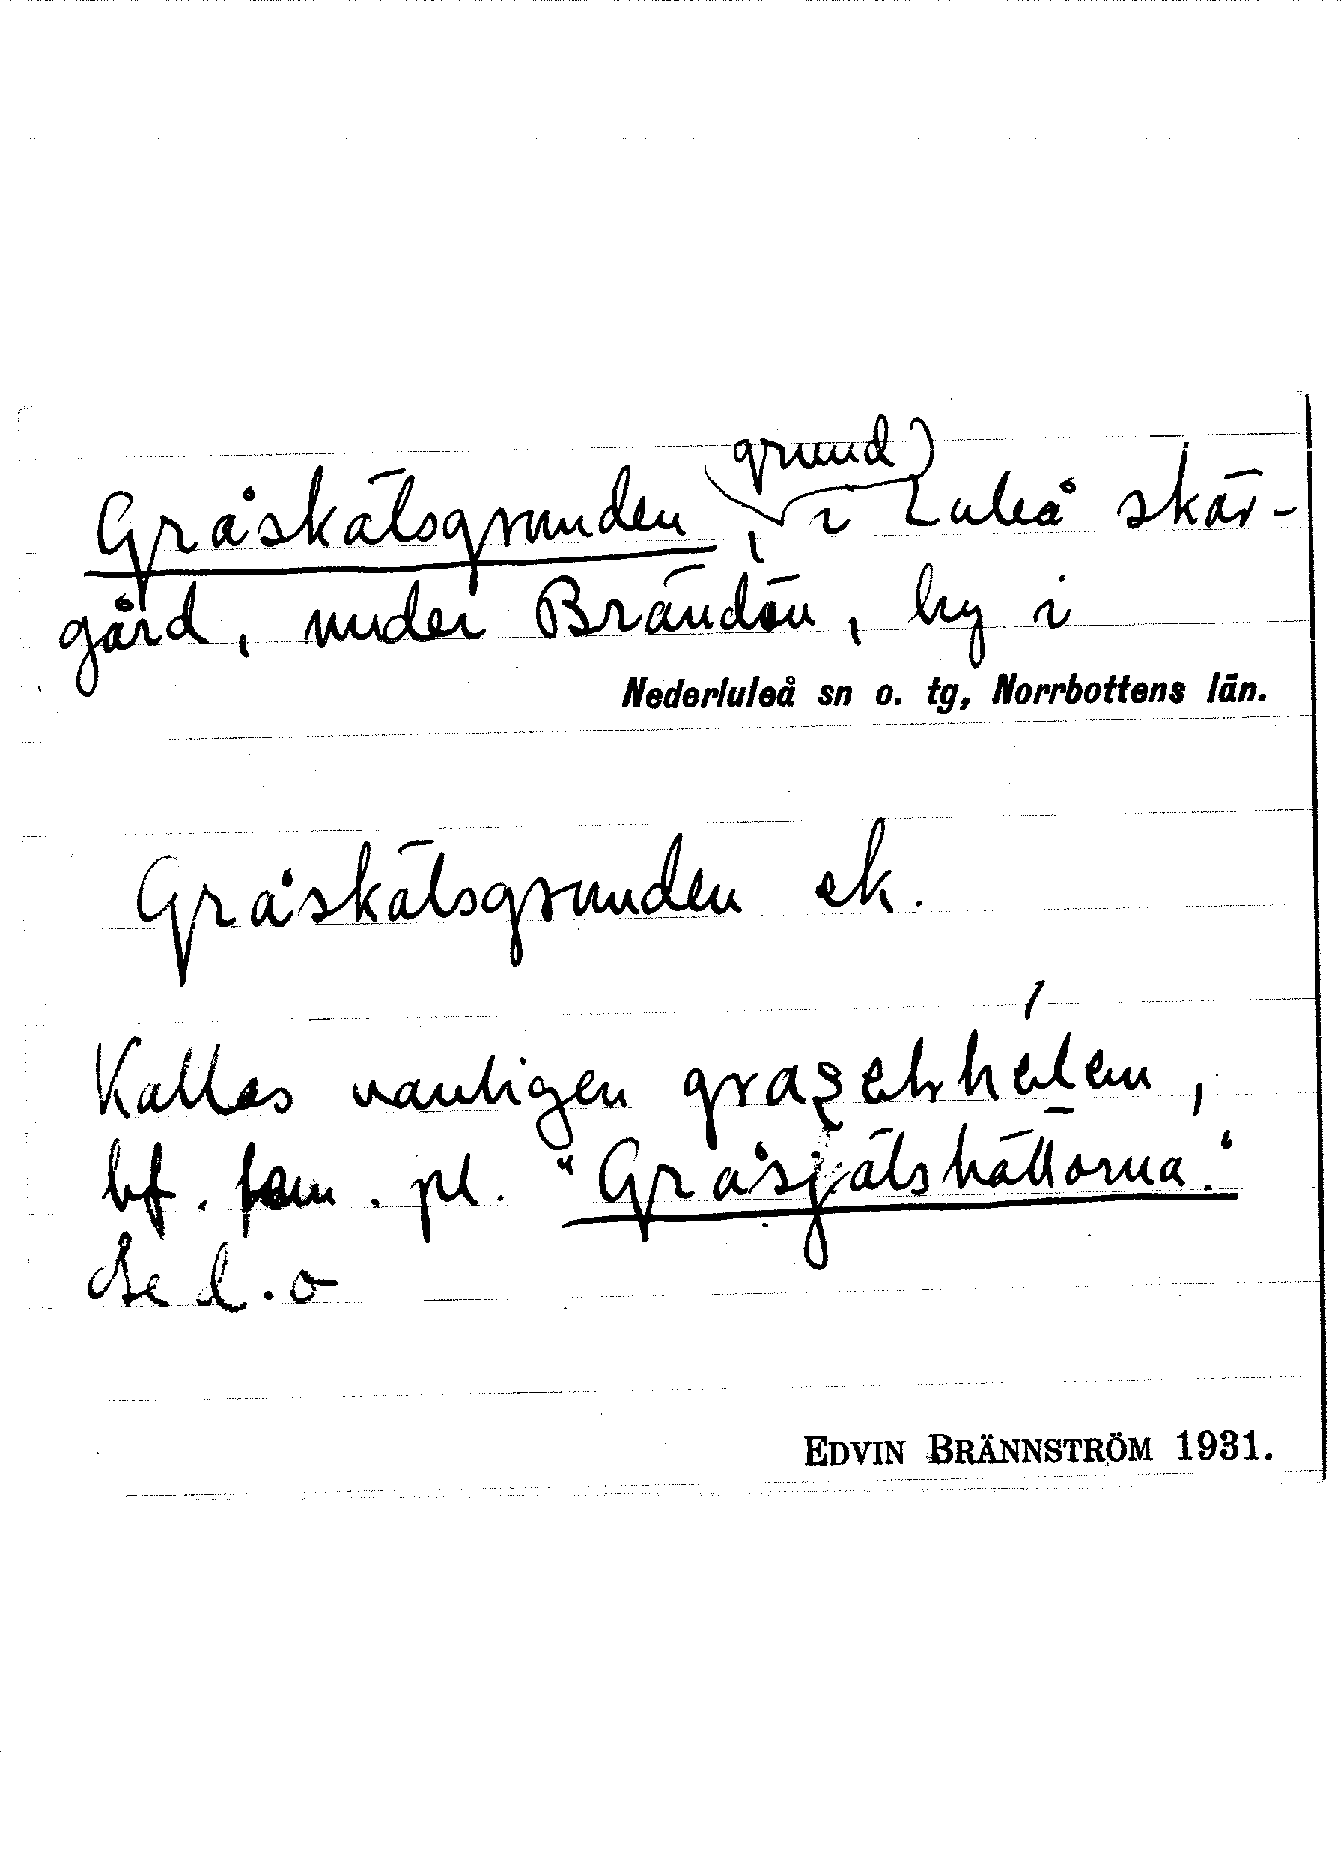 Gråskälsgrunden, grund i Luleå skär-
gård, under Brändön, by i
Nederluleå sn o. tg, Norrbottens län.
Gråskälsgrunden ek.
Kallas vanligen
bf. fem. pl. "Gråsjälshällorna."
Se d.o
EDVIN BRÄNNSTRÖM 1931.